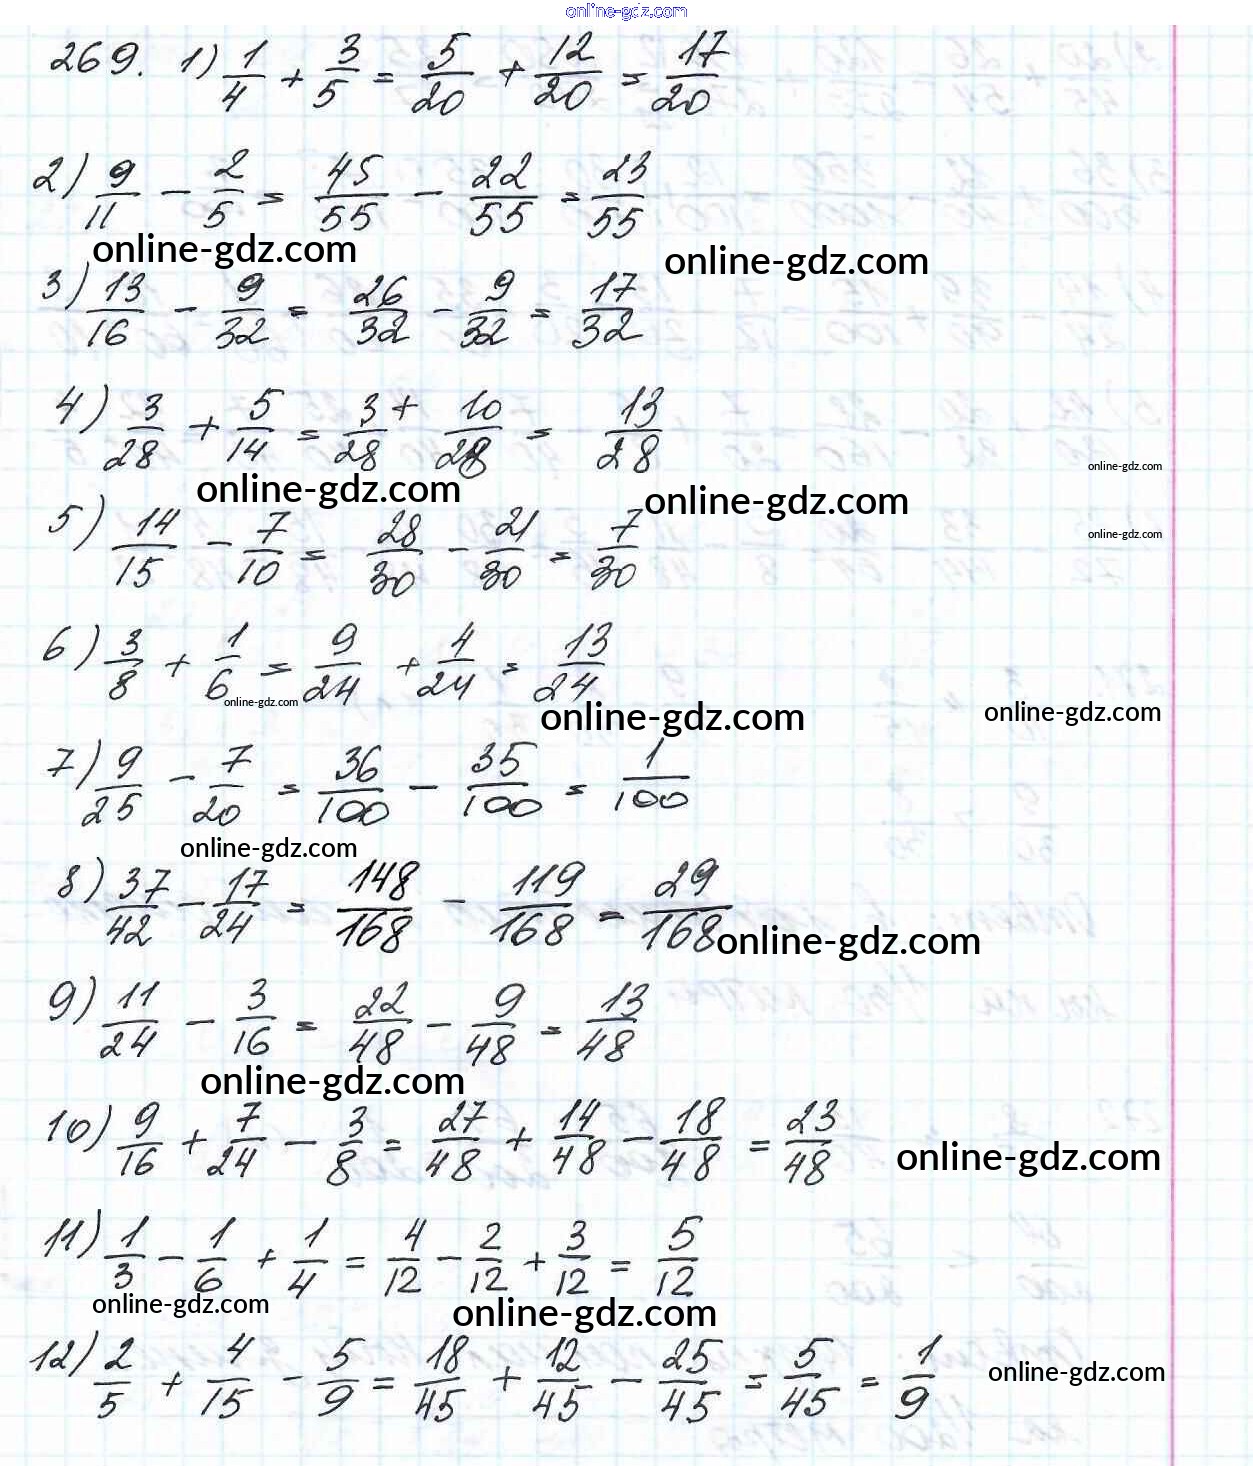 online-gdz.com
269. 1) 1/4 + 3/5 = 5/20 + 12/20 = 17/20
2) 9/11 - 2/5 = 45/55 - 22/55 = 23/55
online-gdz.com online-gdz.com
3) 13/16 - 9/32 = 26/32 - 9/32 = 17/32
4) 3/28 + 5/14 = 3/28 + 10/28 = 13/28
online-gdz.com
online-gdz.com online-gdz.com
5) 14/15 - 7/10 = 28/30 - 21/30 = 7/30
online-gdz.com
6) 3/8 + 1/6 = 9/24 + 4/24 = 13/24
online-gdz.com online-gdz.com online-gdz.com
7) 9/25 - 7/20 = 36/100 - 35/100 = 1/100
online-gdz.com
8) 37/42 - 17/24 = 148/168 - 119/168 = 29/168
online-gdz.com
9) 11/24 - 3/16 = 22/48 - 9/48 = 13/48
online-gdz.com
10) 9/16 + 7/24 - 3/8 = 27/48 + 14/48 - 18/48 = 23/48
online-gdz.com
11) 1/3 - 1/6 + 1/4 = 4/12 - 2/12 + 3/12 = 5/12
online-gdz.com online-gdz.com
12) 2/5 + 4/15 - 5/9 = 18/45 + 12/45 - 25/45 = 5/45 = 1/9
online-gdz.com